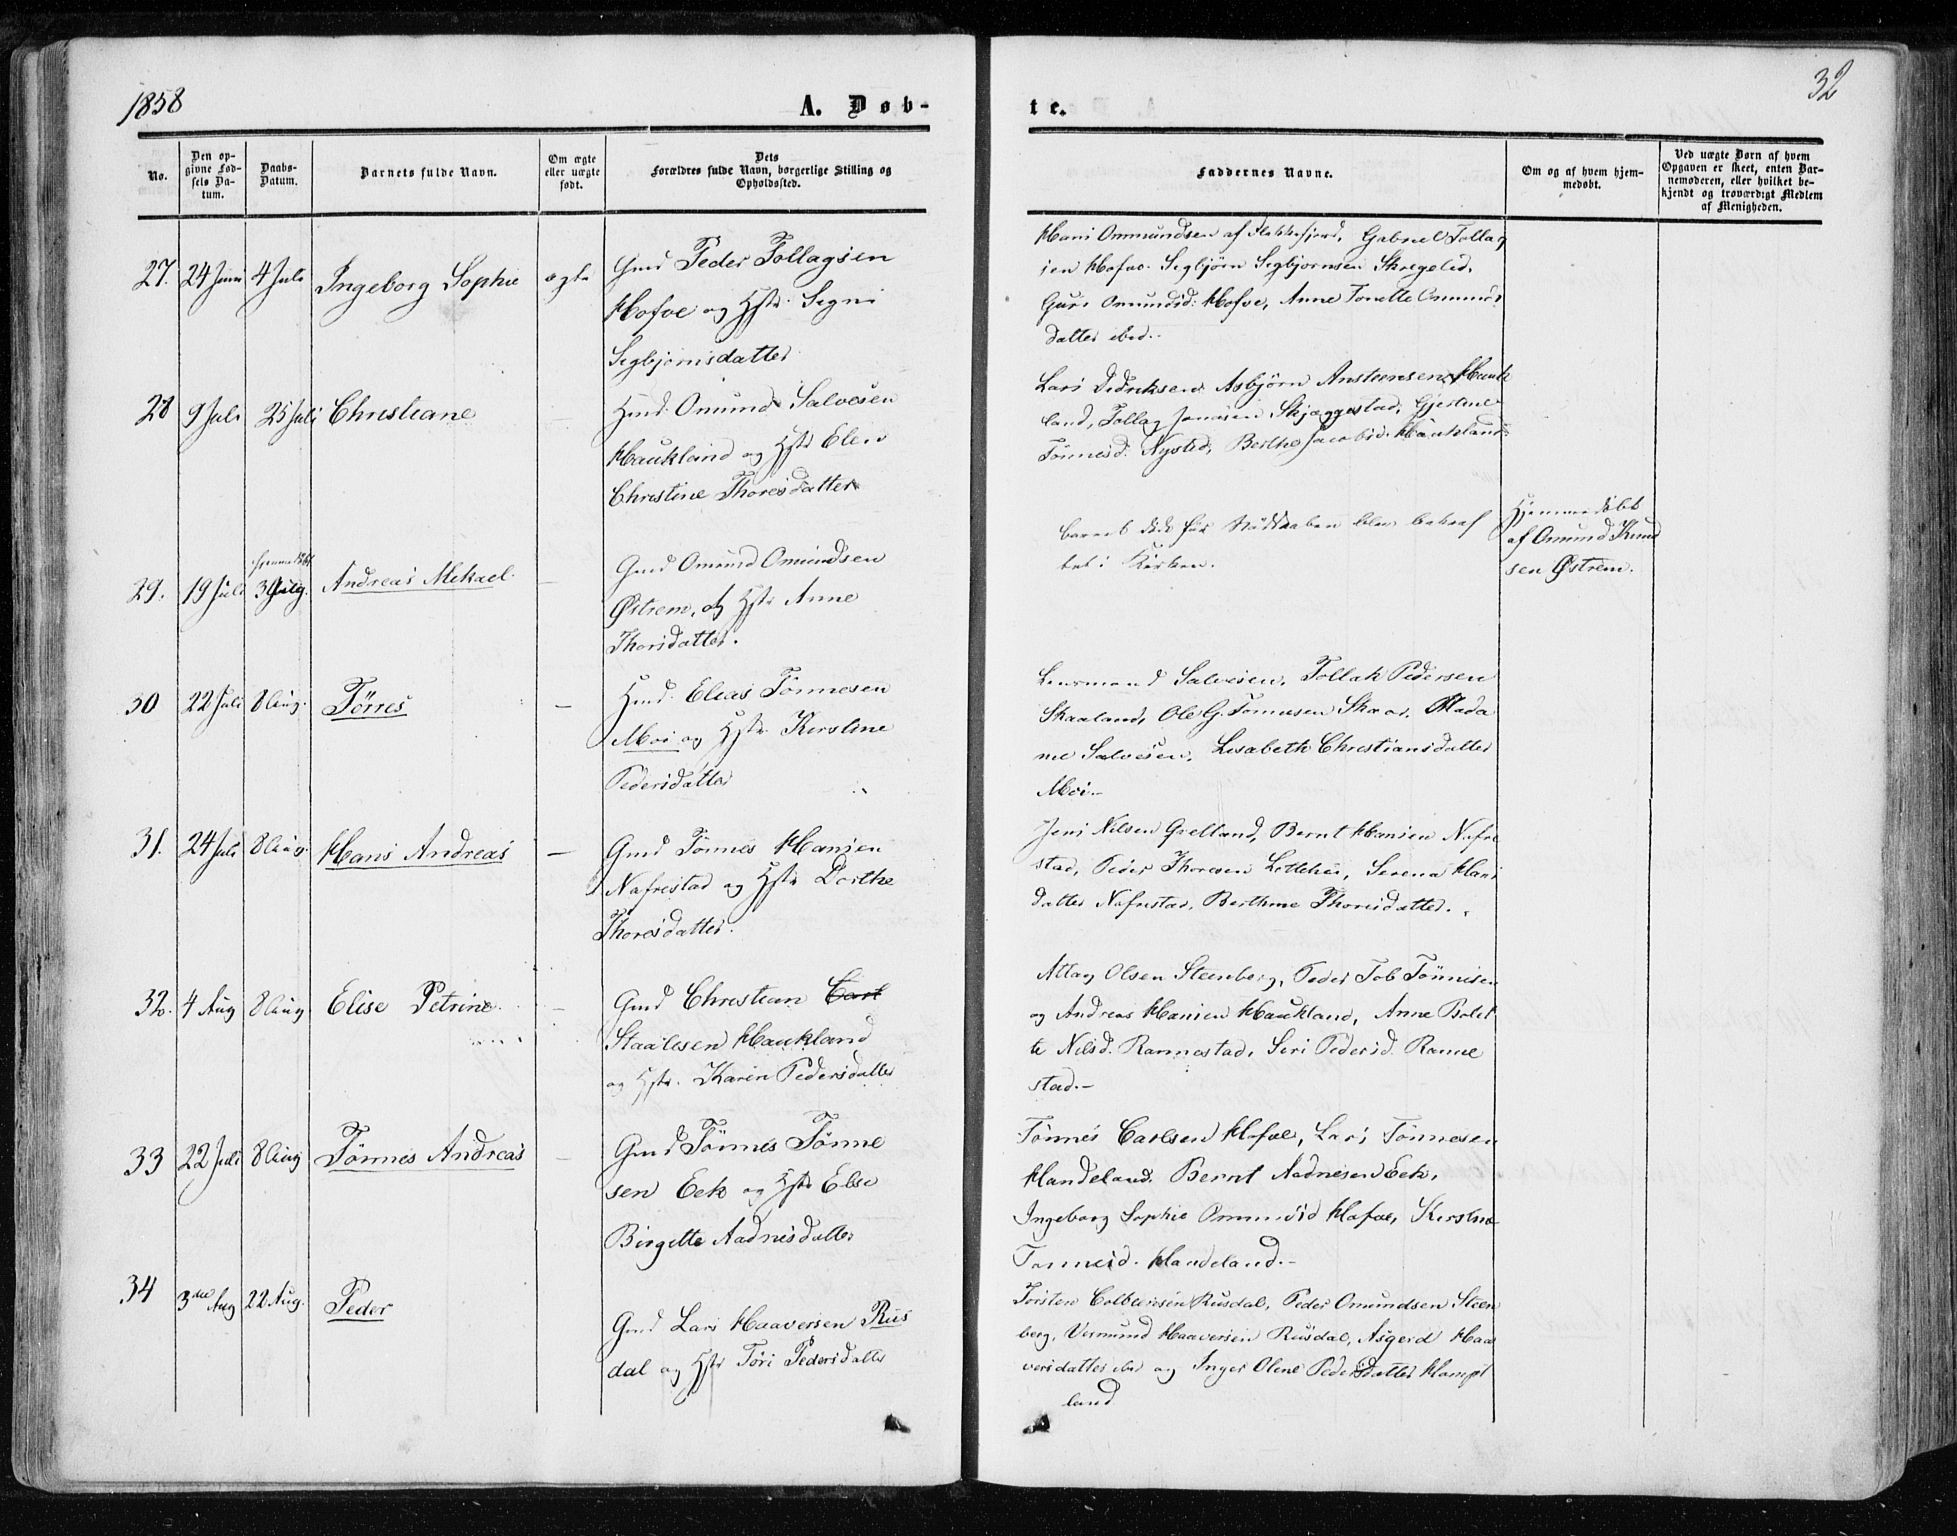 1858
A. Døb-
te.
32
No.
Den op-
givne Fød-
sels Da-
tum.
Daabs-
Datum.
Barnets fulde Navn.
Om ægte
eller uægte
født.
Dets
Forældres fulde Navn, borgerlige Stilling og
Opholdssted.
Faddernes Navne.
Om og af hvem hjem-
medøbt.
Ved uægte Børn af hvem
Opgaven er skeet, enten Bar-
nemoderen, eller hvilket be-
kjendt og troværdigt Medlem
af Menigheden.
27. 24 Juni 4 Juli Ingeborg Sophie ægte
Gmd Peder Tollagsen
Hofve og Hstr. Segni
Segbjørnsdatter
Hans Ommundsen af Flekkefjord, Gabriel Tollag
sen Hofve. Segbjørn Segbjørnsen Skregelid,
Guri Omundsd: Hofve, Anne Tonette Ommunds
datter ibid.
28 9 Juli 25 Juli Christiane —
Hmd. Omund Salvesen
Haukland og Hstr Elen
Christine Thoresdatter
Lars Didriksen Asbjørn Anstensen Hauk
land, Tollag Jonassen Skjæggestad, Gjertine
Tønnesd. Nysted, Berthe Jacobsd. Haukland
29. 19 Juli Hjemmedøbt 30 Andreas Mekael.
Gmd Omund Omundsen
Østrem, og Hstr Anne
Thorsdatter.
barnet døde før Stadfæstelsen
i Kirken.
Hjemmedøbt
af Omund Knud
sen Østrem.
30 22 Juli 8 Aug. Tørres —
Hmd. Elias Tønnesen
Moi og Hstr. Kirstine
Pedersdatter
Lensmand Salvesen, Tollak Pedersen
Skaaland, Ole G. Tønnesen Skaar. Mada
me Salvesen, Lisabeth Christiansdatter
Moi.-
31. 24 Juli 8 Aug. Hans Andreas —
Gmd Tønnes Hansen
Nafrestad og Hstr Dorthe
Thoresdatter.
Jens Nilsen Grelland, Bernt Hansen Nafre
stad, Peder Thoresen, Serena Hans
datter Nafrestad, Berthine Thorsdatter.
32. 4 Aug 8 Aug Elise Petrine. —
Gmd Christian Carl
Staalesen Haukland
og Hstr. Karen Pedersdatter
Atlag Olsen Steenberg, Peder Tob Tønnesen
og Andreas Hansen Haukland, Anne Bolet
te Nilsd. Rannestad, Seri Pedersd. Ranne
stad.-
33 22 Juli 8 Aug Tønnes Andreas —
Gmd Tønnes Tønne
sen Eek og Hstr Elise
Birgitte Aadnesdatter
Tønnes Carlsen Hofve, Lars Tønnesen
Handeland. Bernt Aadnesen Eek.
Ingeborg Sophie Ommundsd Hofve, Kirstine
Tønnesd. Handeland.-
34 3die Aug 22 Aug. Peder
Gmd Lars Haaversen Rus
dal og Hstr Tøri Pedersdatter
Torsten Colbeensen Rusdal, Peder Omundsen Steen
berg, Vermund Haaversen Rusdal, Asgerd Haa
versdatter ibd og Inger Olene Pedersdatter Hompl
land